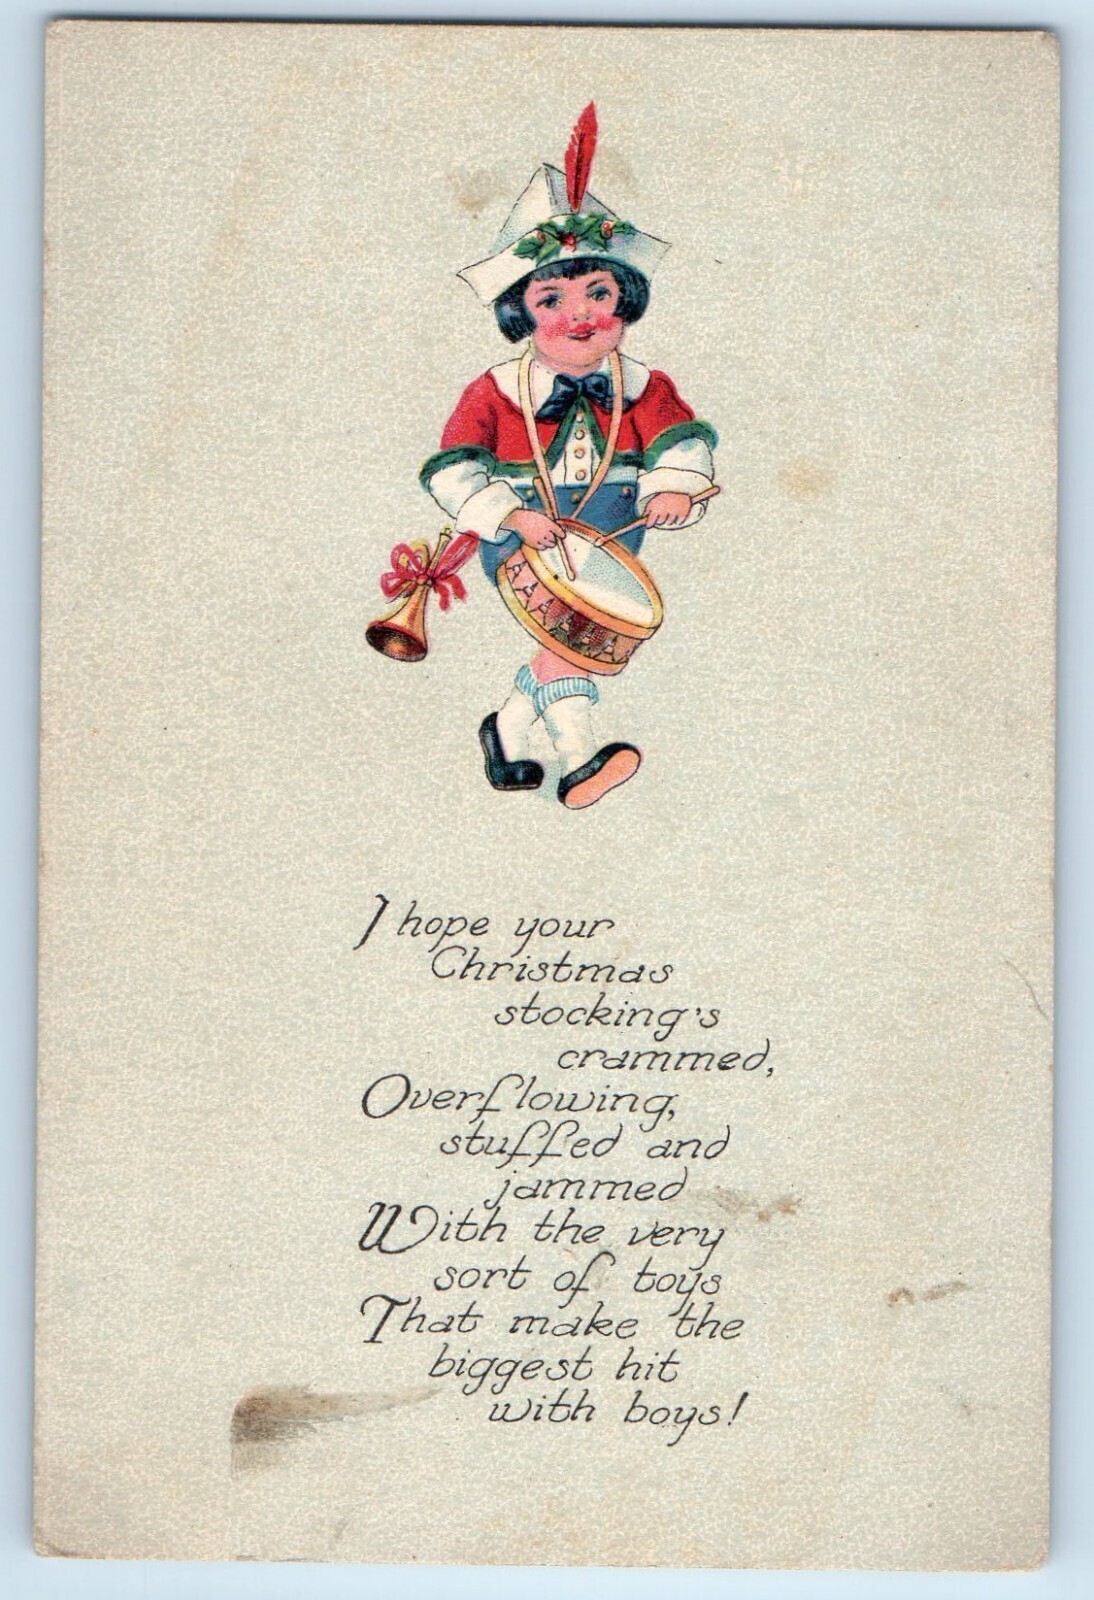 I hope your
Christmas
stocking's
crammed,
Overflowing,
stuffed and
jammed
With the very
sort of toys
That make the
biggest hit
with boys!